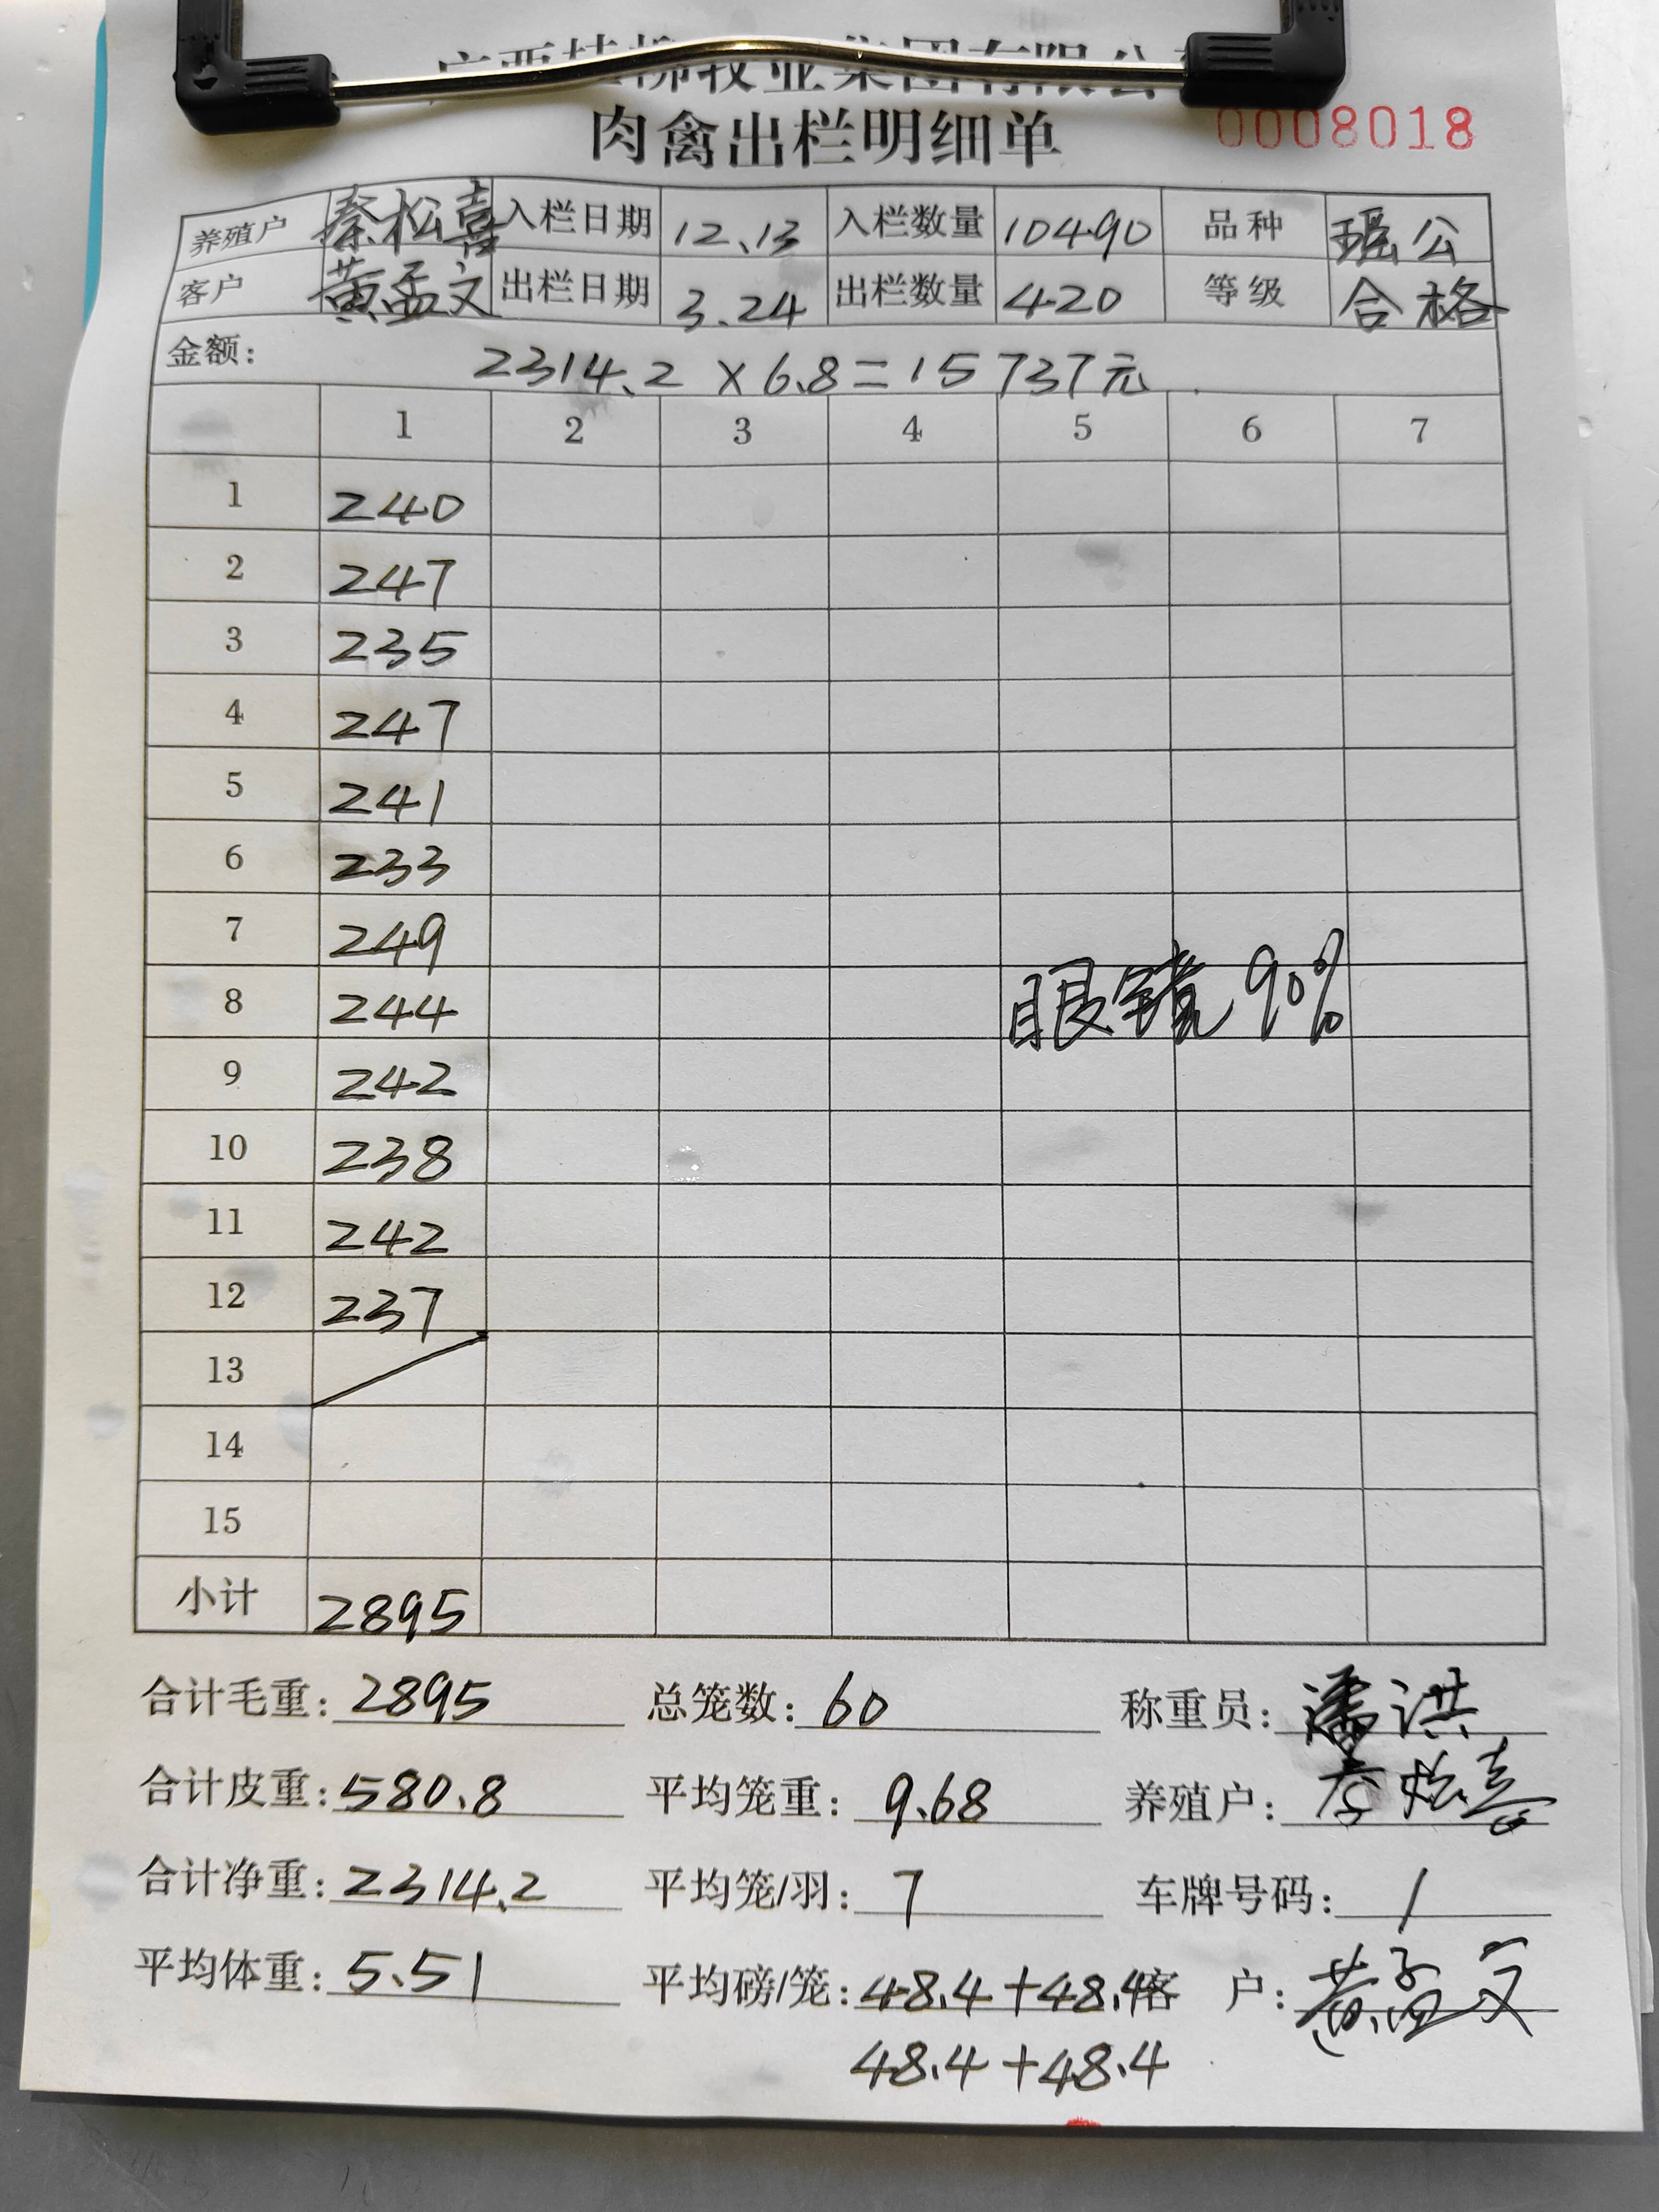 牧业集团有限公
肉禽出栏明细单
0008018
养殖户 秦松喜 入栏日期 12.13 入栏数量 10490 品种 瑶公
客户 黄孟文 出栏日期 3.24 出栏数量 420 等级 合格
金额: 2314.2 × 6.8 = 15737元
1 2 3 4 5 6 7
1 240
2 247
3 235
4 247
5 241
6 233
7 249
8 244 眼镜 90%
9 242
10 238
11 242
12 237
13
14
15
小计 2895
合计毛重: 2895 总笼数: 60 称重员: 潘洪
合计皮重: 580.8 平均笼重: 9.68 养殖户: 秦松喜
合计净重: 2314.2 平均笼/羽: 7 车牌号码: /
平均体重: 5.51 平均磅/笼: 48.4+48.4 客 户: 黄孟文
48.4+48.4